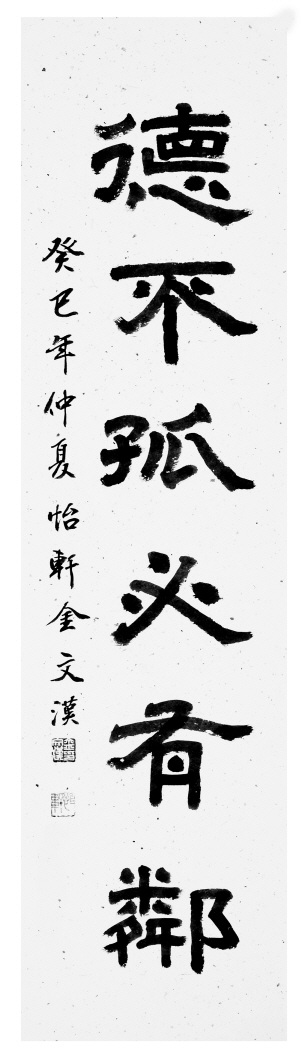 德不孤必有鄰
癸巳年仲夏怡軒金文漢